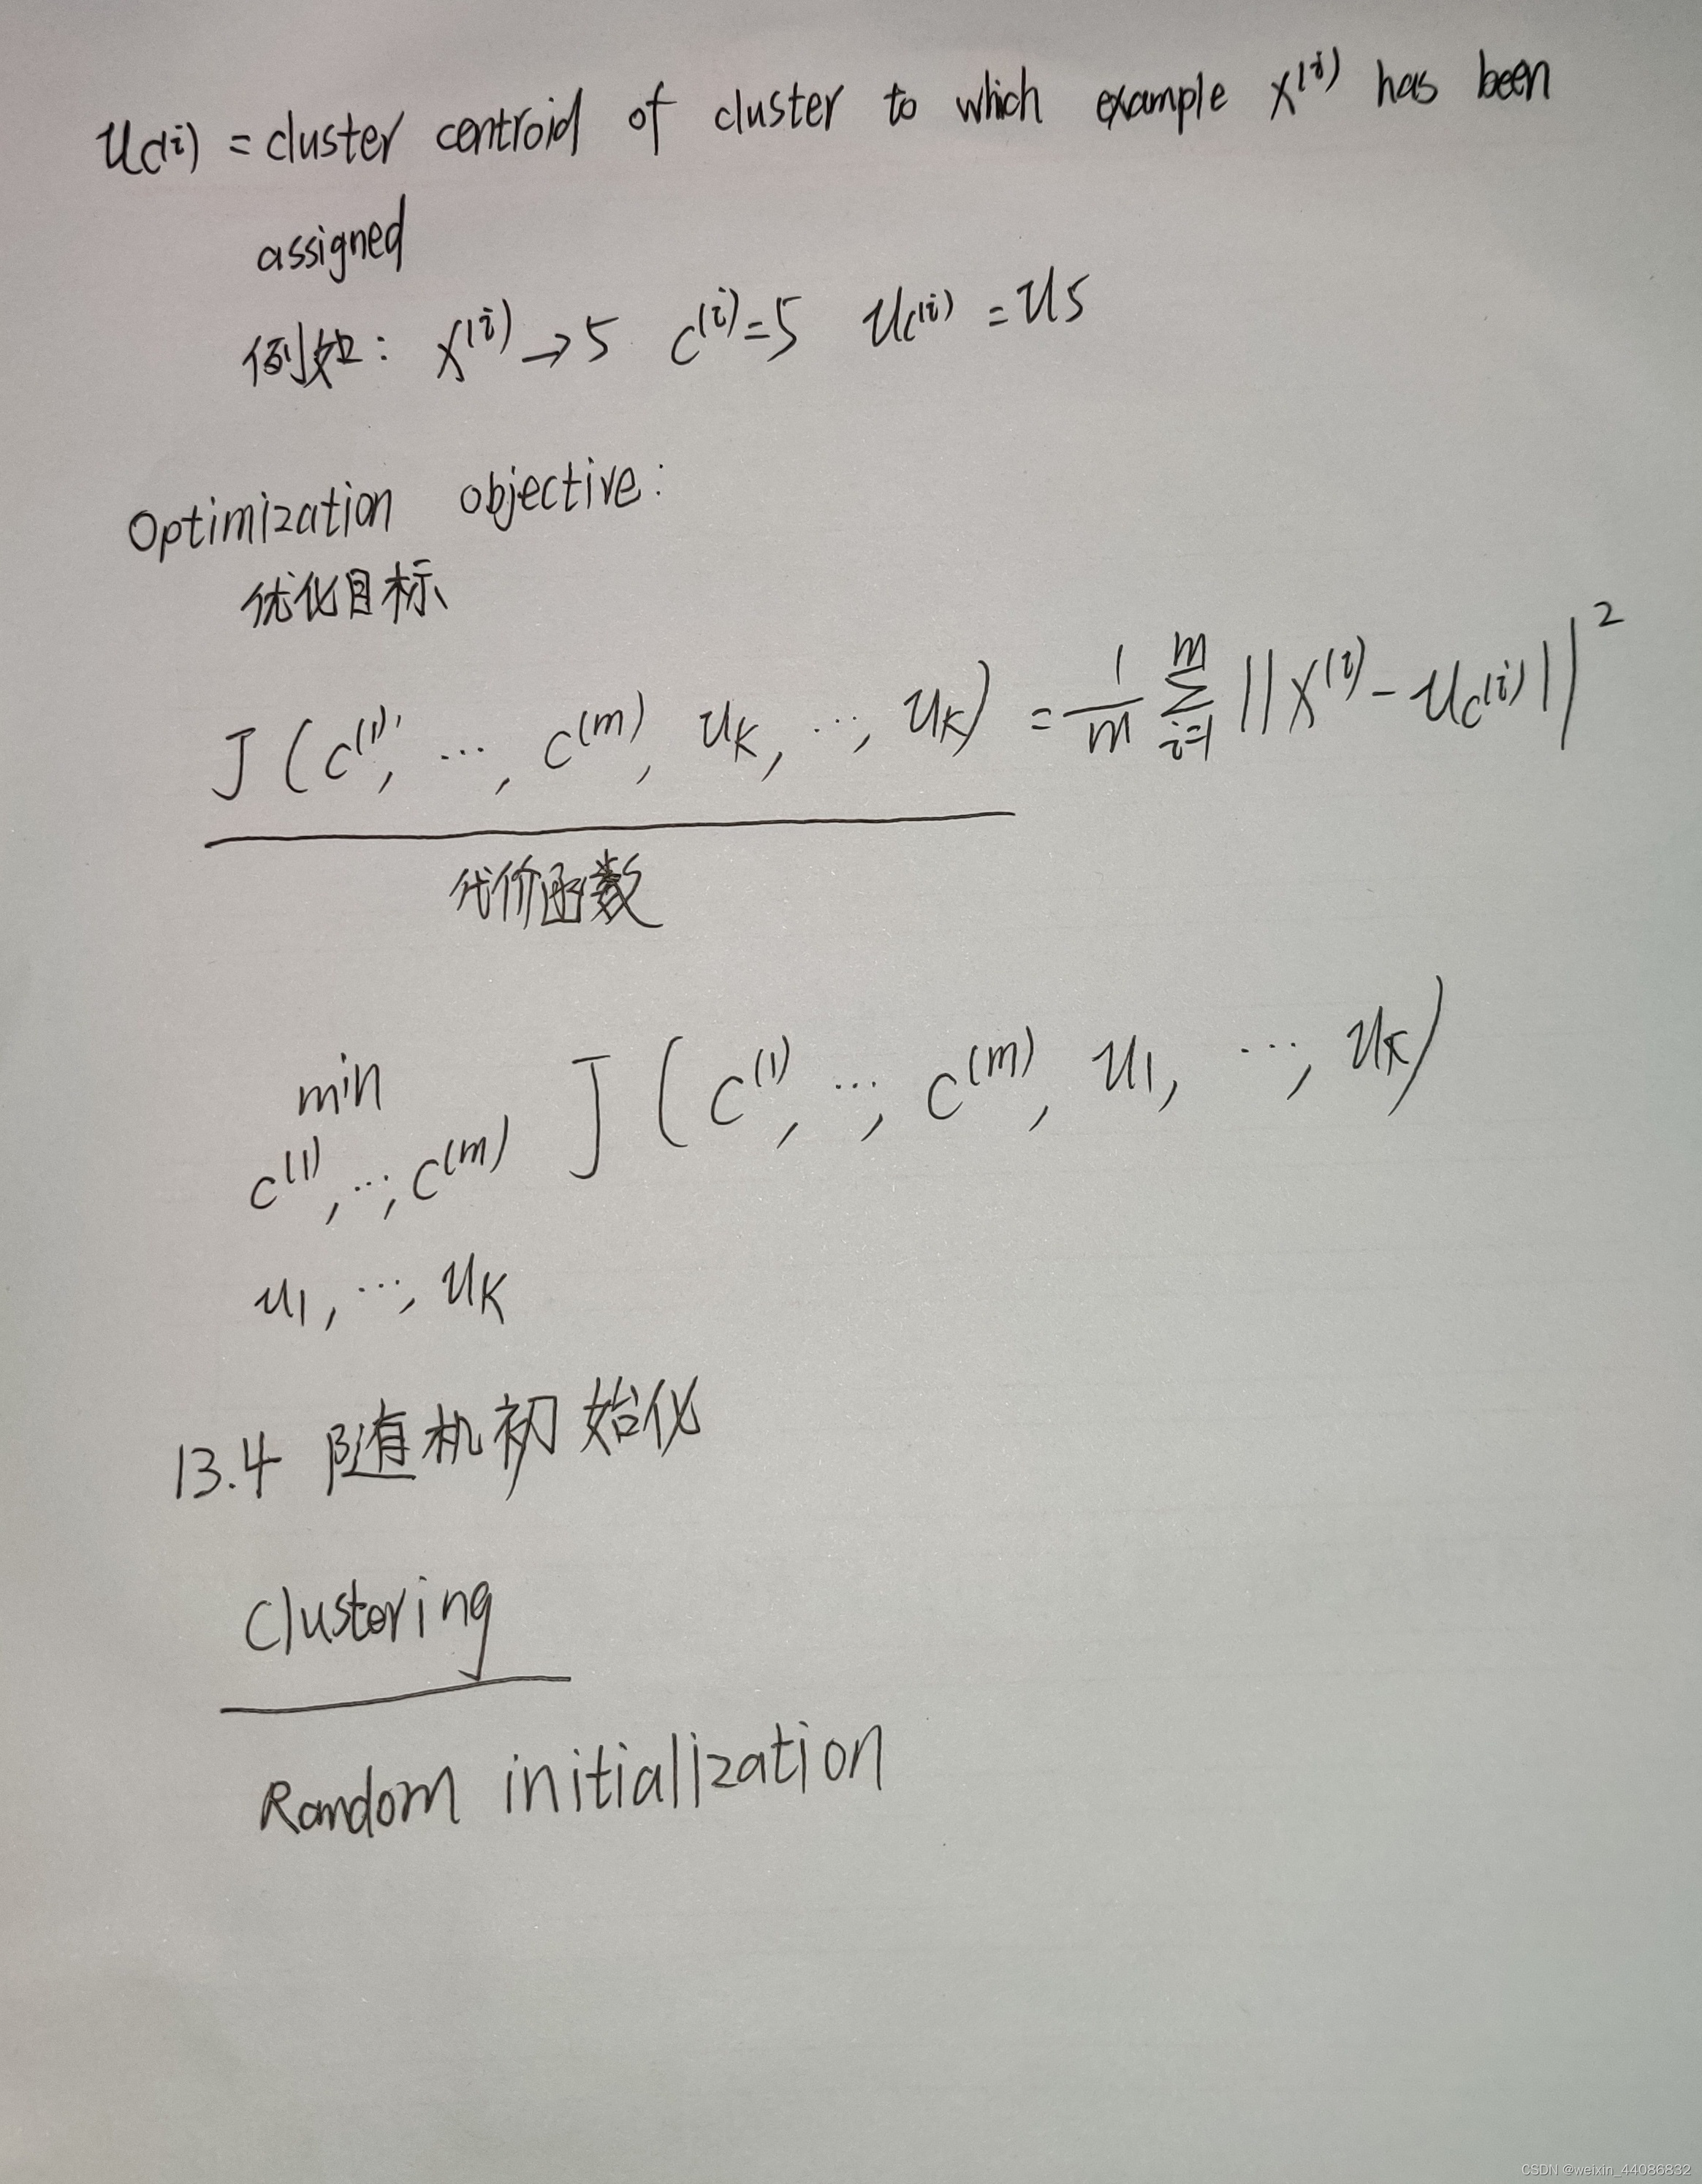 u_c(i) = cluster centroid of cluster to which example x^(i) has been
assigned
例如: x^(i) → 5 c^(i) = 5 u_c^(i) = u5
Optimization objective:
优化目标
J (c^(1), ..., c^(m), u_K, ..., u_K) = 1/m ∑_{i=1}^{m} ||x^(i) - u_c^(i)||^2
代价函数
min J (c^(1), ..., c^(m), u_1, ..., u_K)
c^(1), ..., c^(m)
u_1, ..., u_K
13.4 随机初始化
Clustering
Random initialization
CSDN @weixin_44086832